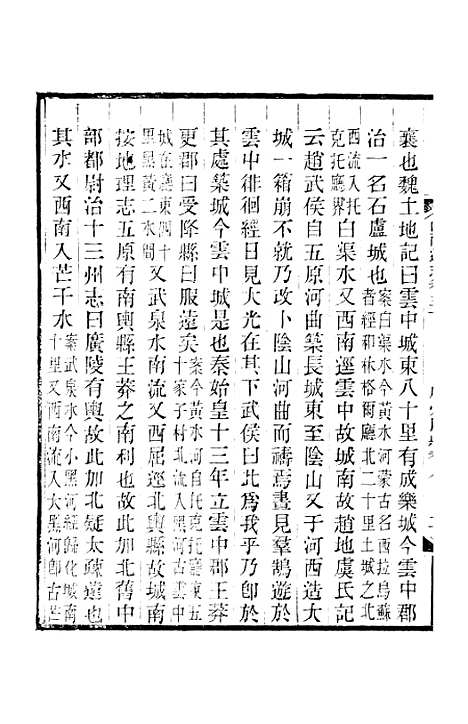 襄也魏土地記曰雲中城東八十里有成樂城今雲中郡
治一名石盧城也案白渠水今黃水河蒙古名西拉烏蘇
者經和林格爾廳北二十里土城之北
西流入托
克托廳界白渠水又西南逕雲中故城南故趙地虞氏記
云趙武侯自五原河曲築長城東至陰山又于河西造大
城一箱崩不就乃改卜陰山河曲而禱焉晝見羣鵠遊於
雲中徘徊經日見大光在其下武侯曰此爲我乎乃卽於
其處築城今雲中城是也秦始皇十三年立雲中郡王莽
更郡曰受降縣曰服遠矣案今黃水河自托克托城東五
十家子村北流入黑河古雲
城在薩東四十
里黑黃二水間又武泉水南流又西屈逕北輿縣故城南
按地理志五原有南輿縣王莽之南利也故此加北舊中
部都尉治十三州志曰廣陵有輿故此加北疑太疎遠也
其水又西南入芒干水案武泉水今小黑河經歸化城南
十里又西南流入大黑河卽古芒